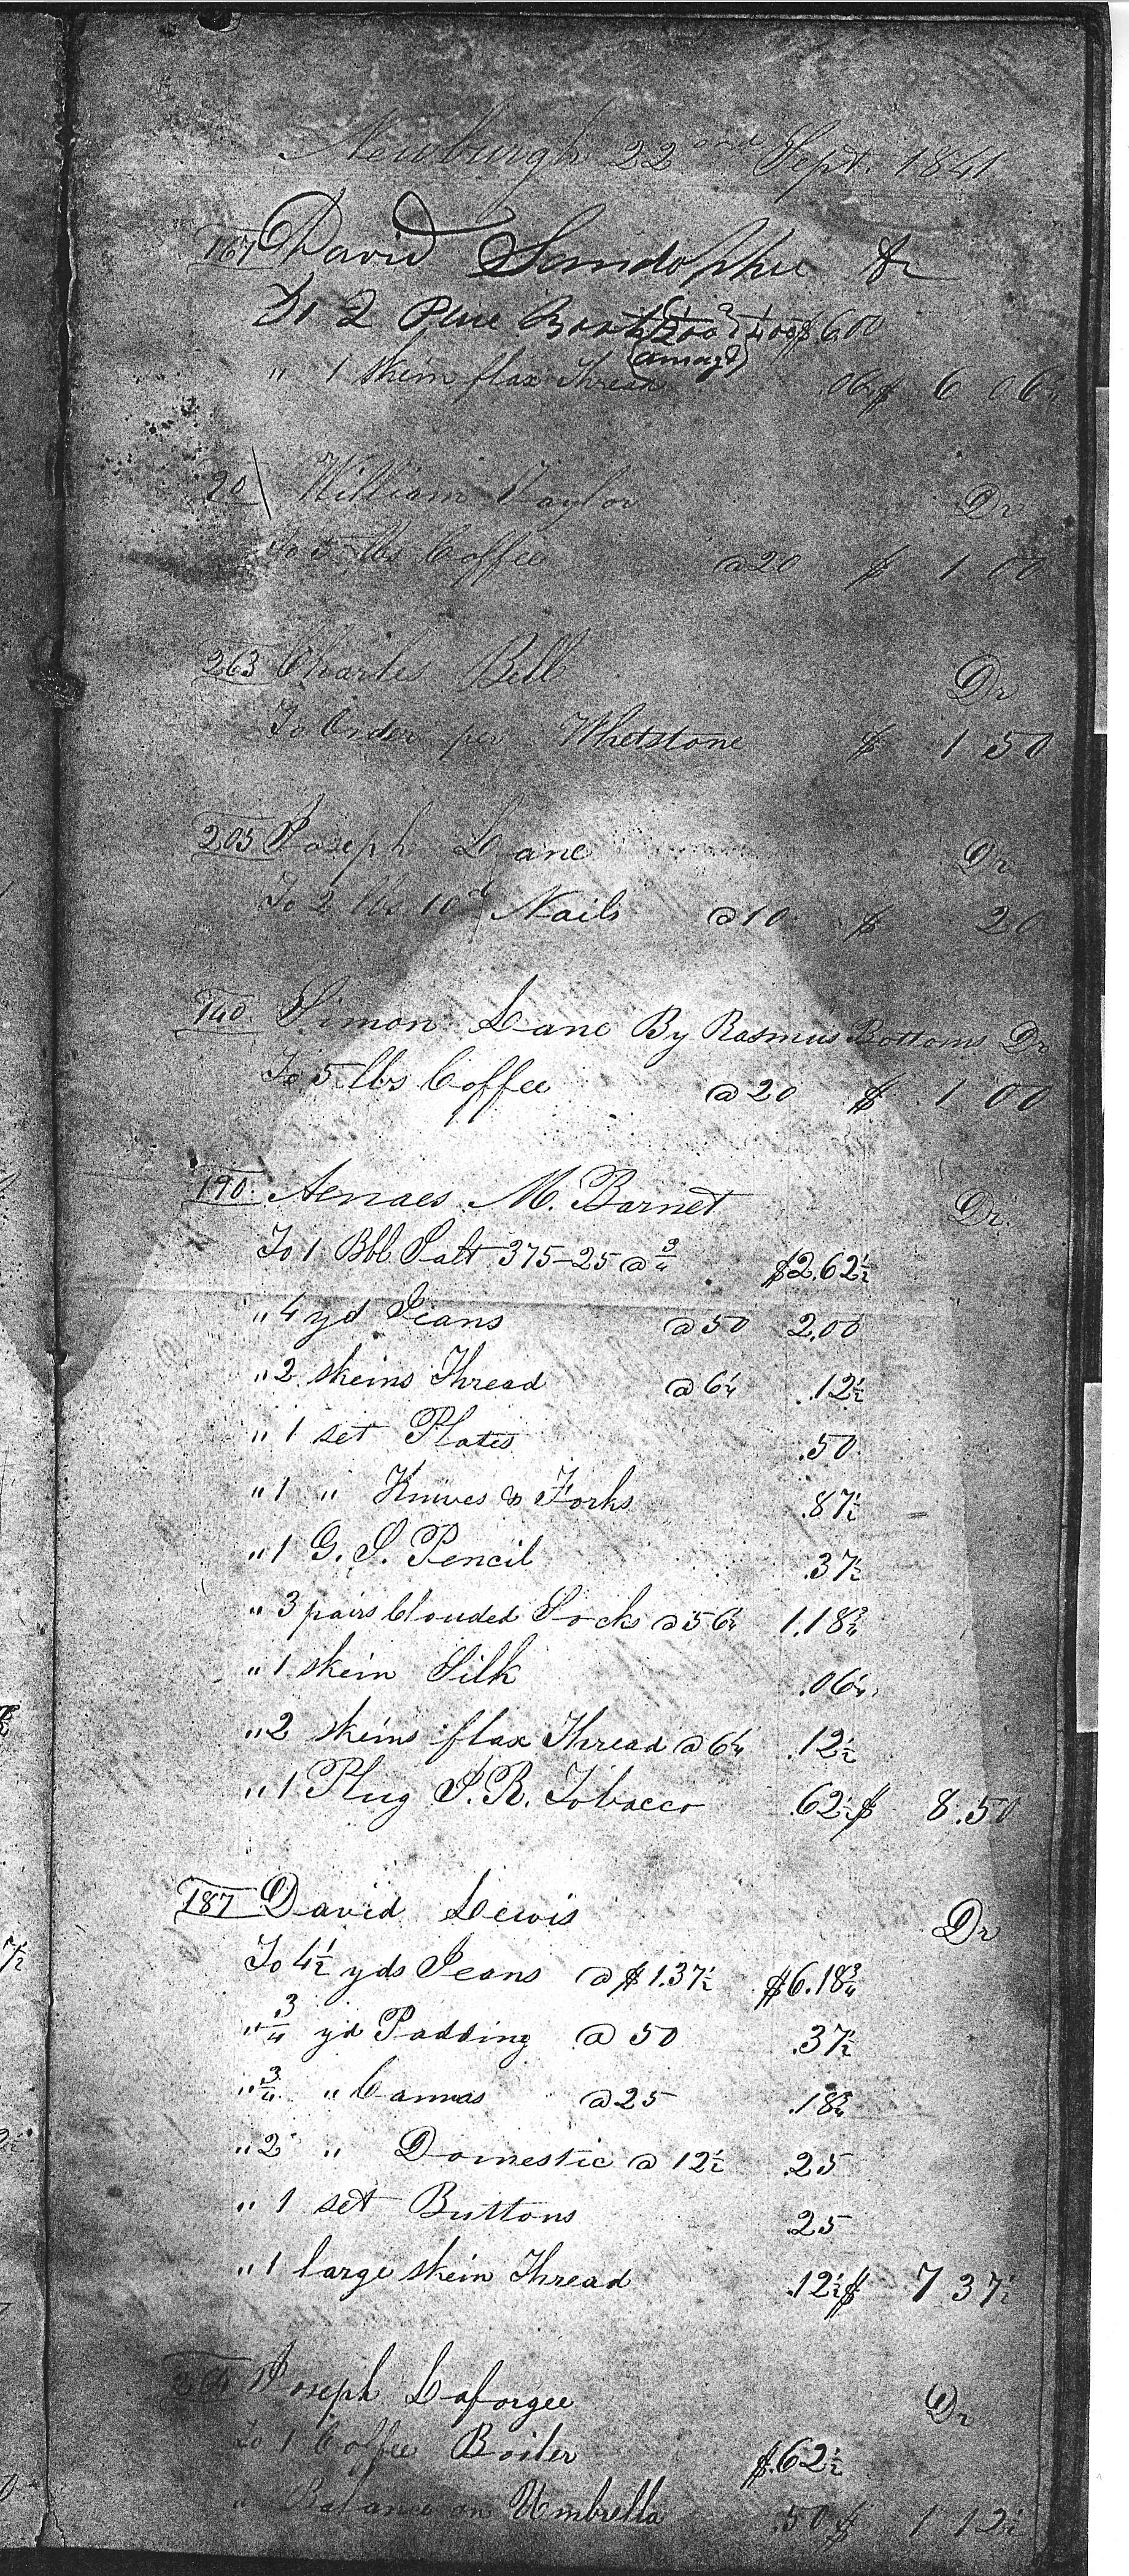 Newburgh 22nd Sept. 1841
167 David Dr
To 2 $6.00
" 1 skein flax Thread .06¼ $ 6 06¼
20 William Taylor Dr
To 5 lbs Coffee @ 20 $ 1 00
263 Charles Bell Dr
To Order per Whetstone $ 1 50
205 Joseph Lane Dr
To 2 lbs 10d Nails @ 10 $ 20
140 Simon Lane By Rasmus Bottoms Dr
To 5 lbs Coffee @ 20 $ 1 00
190 Aenaes M. Barnet Dr.
To 1 Bbl Salt 375-25 @ ¾ $2.62½
" 4 yd Jeans @ 50 2.00
" 2 skeins Thread @ 6¼ .12½
" 1 set Plates .50
" 1 " Knives & Forks .87½
" 1 G. S. Pencil .37½
" 3 pairs Clouded Socks @ 56¼ 1.18¾
" 1 skein Silk .06¼
" 2 skeins flax Thread @ 6¼ .12½
" 1 Plug J.R. Tobacco .62½ $ 8.50
187 David Lewis Dr
To 4½ yds Jeans @ $1.37½ $6.18¾
" ¾ yd Padding @ 50 .37½
" ¾ " Canvas @ 25 .18¾
" 2 " Domestic @ 12½ .25
" 1 set Buttons .25
" 1 large skein Thread .12½ $ 7 37½
264 Joseph Laforgee Dr
To 1 Coffee Boiler $.62½
" Balance on Umbrella .50 $ 1 12½